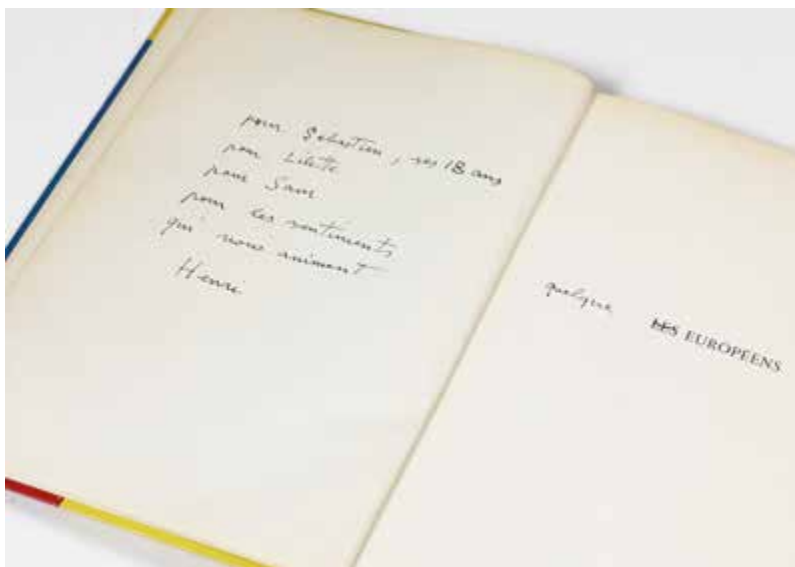 pour Sebastien, ses 18 ans
pour Lilette
pour Sam
pour les sentiments
qui nous animent
Henri
quelque LES EUROPÉENS